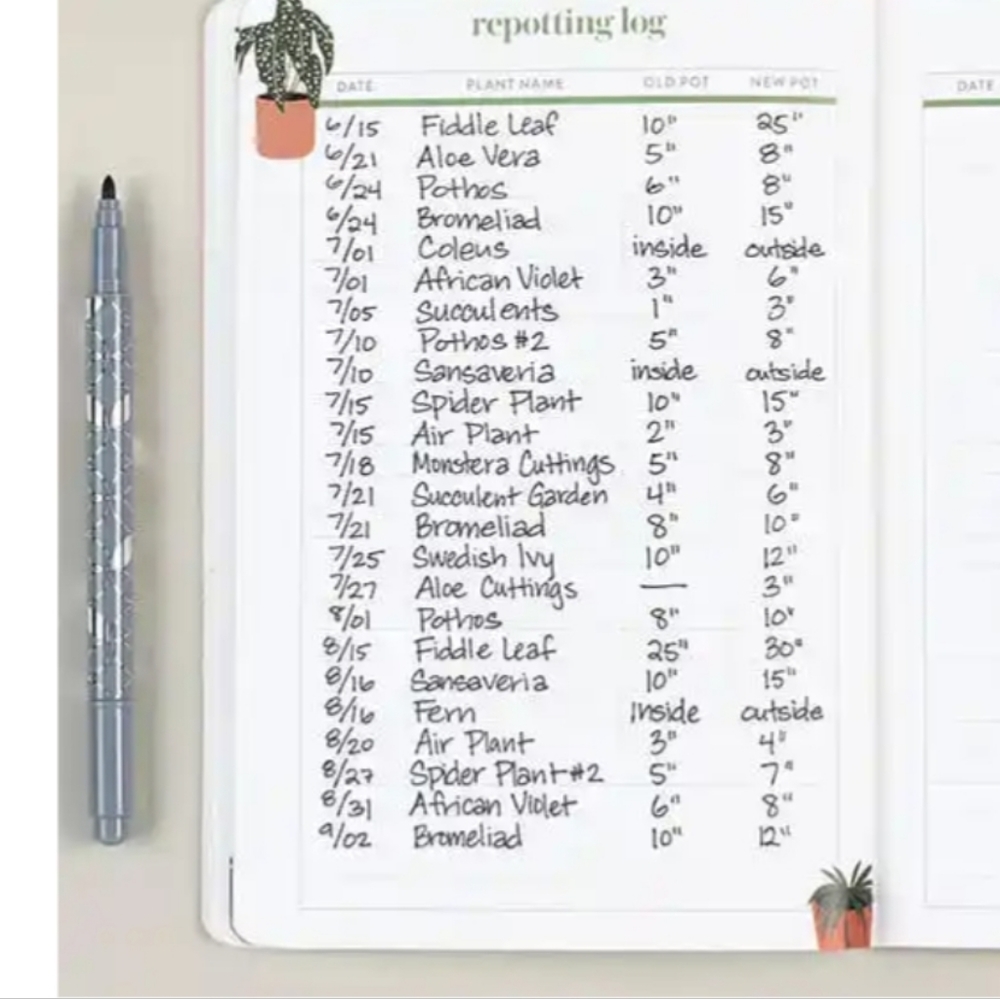 repotting log
DATE PLANT NAME OLD POT NEW POT DATE
6/15 Fiddle Leaf 10" 25"
6/21 Aloe Vera 5" 8"
6/24 Pothos 6" 8"
6/24 Bromeliad 10" 15"
7/01 Coleus inside outside
7/01 African Violet 3" 6"
7/05 Succulents 1" 3"
7/10 Pothos #2 5" 8"
7/10 Sansaveria inside outside
7/15 Spider Plant 10" 15"
7/15 Air Plant 2" 3"
7/18 Monstera Cuttings 5" 8"
7/21 Succulent Garden 4" 6"
7/21 Bromeliad 8" 10"
7/25 Swedish Ivy 10" 12"
7/27 Aloe Cuttings — 3"
8/01 Pothos 8" 10"
8/15 Fiddle Leaf 25" 30"
8/16 Sansaveria 10" 15"
8/16 Fern Inside outside
8/20 Air Plant 3" 4"
8/27 Spider Plant #2 5" 7"
8/31 African Violet 6" 8"
9/02 Bromeliad 10" 12"